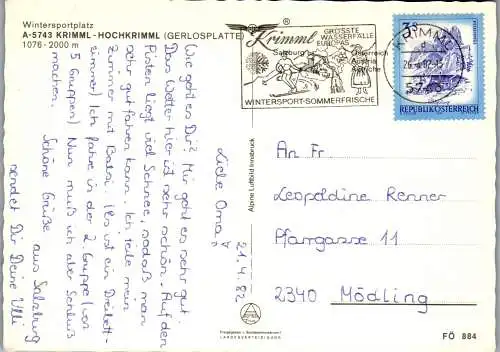 Wintersportplatz
A-5743 KRIMML - HOCHKRIMML (GERLOSPLATTE)
1076 - 2000 m
Krimml
GRÖSSTE
WASSERFÄLLE
EUROPAS
Salzburg
Österreich
Austria
Autriche
WINTERSPORT-SOMMERFRISCHE
KRIMML
5743
REPUBLIK ÖSTERREICH
21.4.82
Liebe Oma!
Wie geht es Dir? Mir geht es sehr gut.
Das Wetter hier ist sehr schön. Auf den
Pisten liegt viel Schnee, sodaß man
sehr gut fahren kann. Ich teile mein
Zimmer mit Babsi. (Es ist ein Dreibett-
zimmer) Ich fahre in der 2. Gruppe (von
5 Gruppen) Nun muß ich aber Schluß
machen.
Schöne Grüße aus Salzburg
sendet Dir Deine Ulli
Alpine Luftbild Innsbruck
An Fr.
Leopoldine Renner
Pfarrgasse 11
2340 Mödling
LANDESVERTEIDIGUNG
FÖ 884